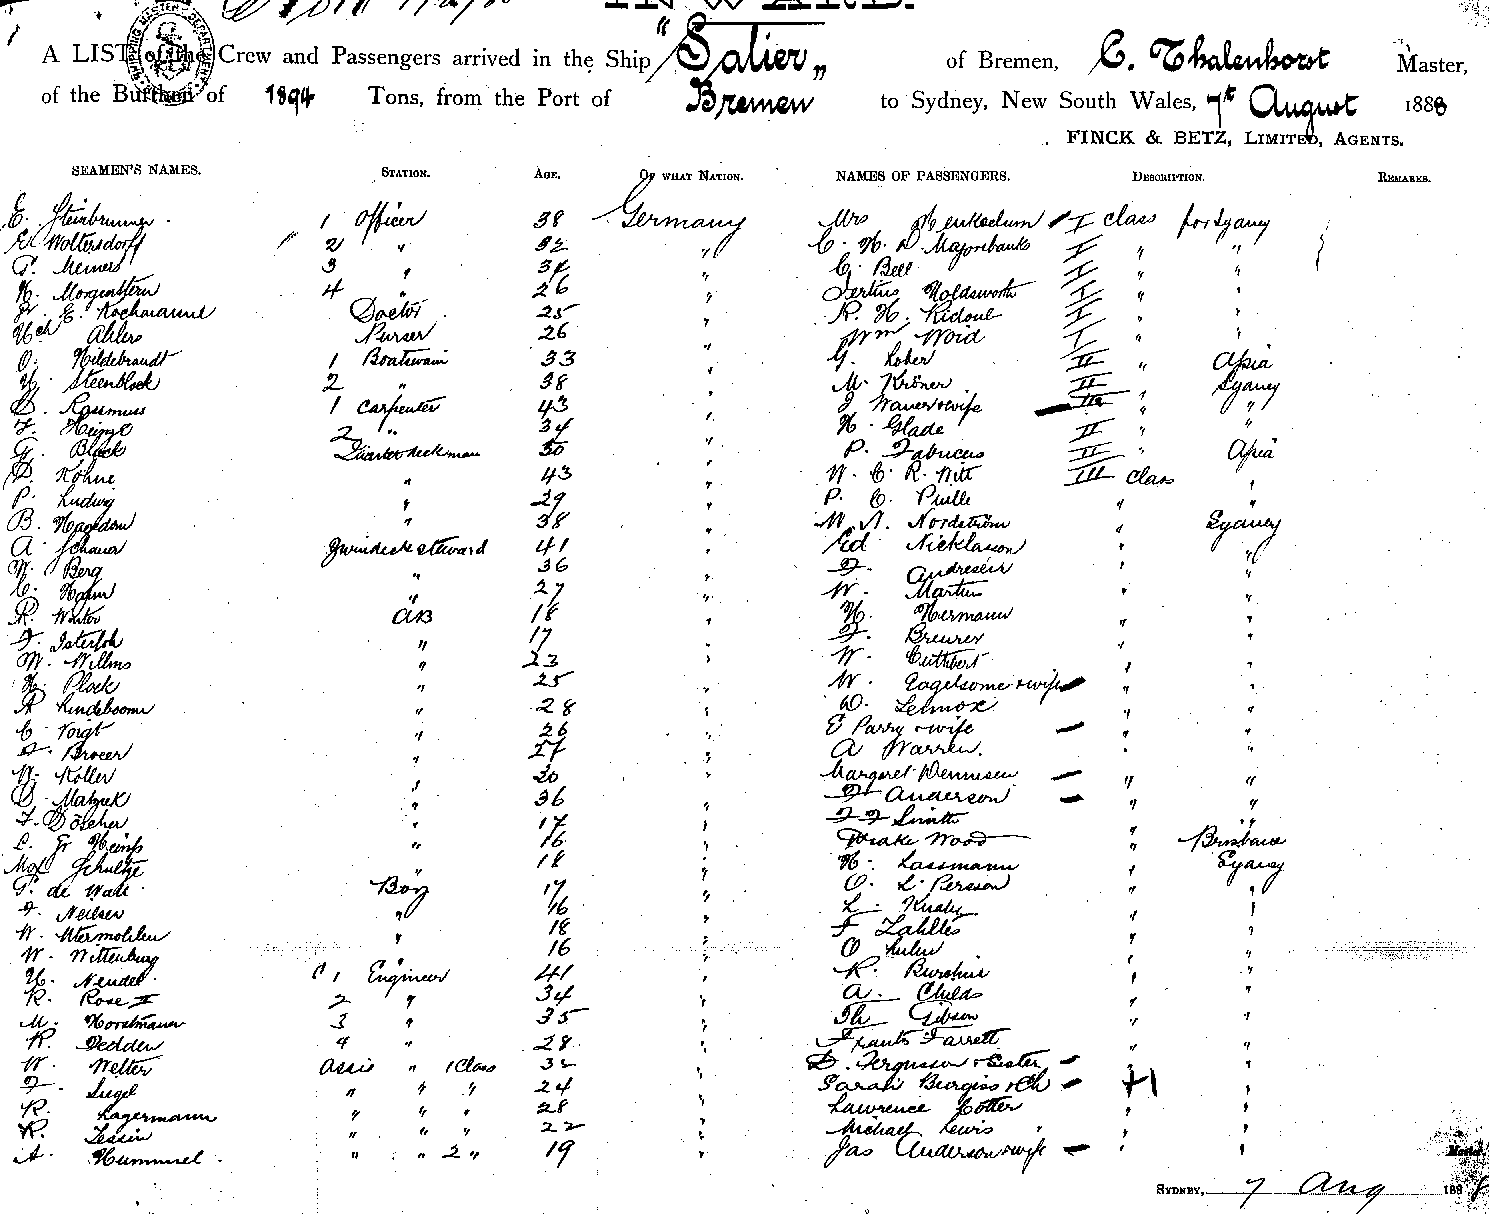 INWARD.
A LIST of the Crew and Passengers arrived in the Ship "Salier" of Bremen, C. Thalenhorst Master,
of the Burthen of 1894 Tons, from the Port of Bremen to Sydney, New South Wales, 7th August 1888
FINCK & BETZ, LIMITED, AGENTS.
SEAMEN'S NAMES. STATION. AGE. OF WHAT NATION. NAMES OF PASSENGERS. DESCRIPTION. REMARKS.
E. Steinbrunner 1 Officer 38 Germany Mrs I class for Sydney
E. Woltersdorff 2 " 32 " C. H. D. Majoribanks I " "
P. Meiners 3 " 34 " C. Bell I " "
H. Morgenstern 4 " 26 " Tertius Holdsworth I " "
E. Kochmann Doctor 25 " R. H. Ridout I " "
Hch Ahlers Purser 26 " Wm Woid I " "
O. Hildebrandt 1 Boatswain 33 " G. Lober II " Apia
H. Steenblock 2 " 38 " M. Kröner II " Sydney
D. Rassmuss 1 Carpenter 43 " J Wauer & wife II " "
F. Heinze 2 " 34 " H. Glade II " "
G. Block Quarterdeckman 30 " P. Fabricus II " Apia
D. Köhne " 43 " W. C. R. Witt III class "
P. Ludwig " 29 " P. C. " "
B. Hagedorn " 38 " M. A. Nordström " Sydney
A. Schauer Zwindeck steward 41 " Ed Nicklasson " "
W. Berg " 36 " F. Andresen " "
C. Hahn " 27 " W. Martin " "
R. Winter AB 18 " H. Hermann " "
F. Osterloh " 17 " F. Breurer " "
M. Willms " 23 " W. Cuthbert " "
H. Plock " 25 " W. Eagelsome & wife " "
A Lindeboom " 28 " D. Lennox " "
C. Voigt " 26 " E Parry & wife " "
F. Broeer " 27 " A Warren. " "
W. Koller " 20 " Margaret Dennisen " "
D. Matzick " 36 " F Anderson " "
F. Döscher " 17 " F F Smith " "
C. Fr Heins " 16 " Drake Wood " Brisbane
Max Schultze " 18 " H. Lassmann " Sydney
P. de Wall Boy 17 " O. L. Persson " "
F. Neilsen " 16 " L. " "
W. Utermohlen " 18 " F " "
W. Wittenburg " 16 " O " "
H. Neudel 1 Engineer 41 " R. " "
R. Rose II 2 " 34 " A. Childs " "
M. Horstmann 3 " 35 " Th Gibson " "
R. Dedden 4 " 28 " Frants Farrett " "
W. Welter Assis " 1 Class 32 " D. Fergusson & Sister " "
F. Siegel " " " 24 " Sarah Burgiss & Ch " "
R. Lagermann " " " 28 " Lawrence Cotter " "
R. Tessin " " " 22 " Michael Lewis " "
A. Hummel " " 2 " 19 " Jas Anderson & wife " "
Master
SYDNEY, 7 Aug 1888